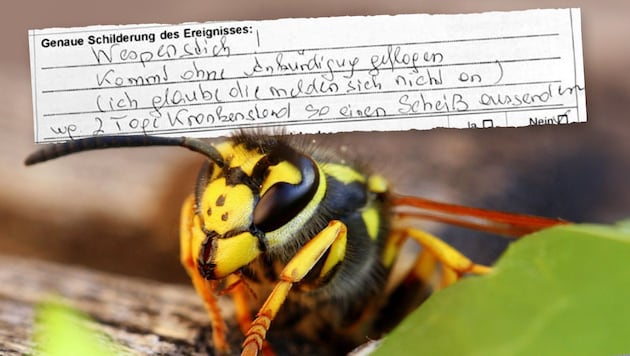 Genaue Schilderung des Ereignisses:
Wespenstich
Kommt ohne Ankündigung geflogen
(ich glaube die melden sich nicht an)
wg 2 Tage Krankenstand so einen Scheiß aussend
Ja Nein